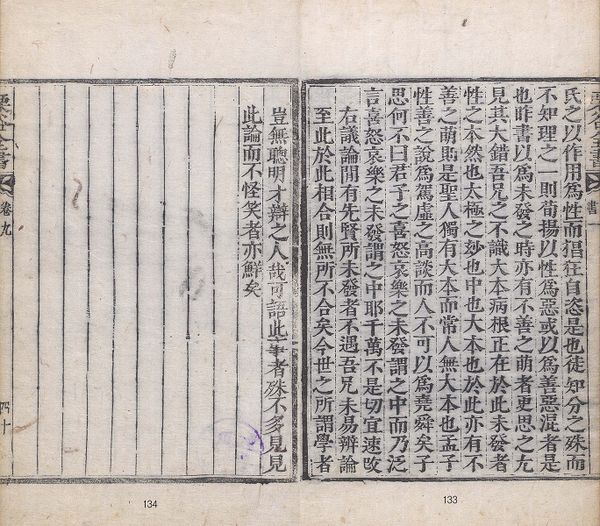 氏之以作用爲性而猖狂自恣是也徒知分之殊而
不知理之一則荀揚以性爲惡或以爲善惡混者是
也昨書以爲未發之時亦有不善之萌者更思之尤
見其大錯吾兄之不識大本病根正在於此未發者
性之本然也太極之妙也中也大本也於此亦有不
善之萌則是聖人獨有大本而常人無大本也孟子
性善之說爲駕虛之高談而人不可以爲堯舜矣子
思何不曰君子之喜怒哀樂之未發謂之中而乃泛
言喜怒哀樂之未發謂之中耶千萬不是切宜速改
右議論間有先賢所未發者不遇吾兄未易辯論
至此於此相合則無所不合矣今世之所謂學者
133
豈無聰明才辯之人哉可語此事者殊不多見見
此論而不怪笑者亦鮮矣
卷九
四十
134